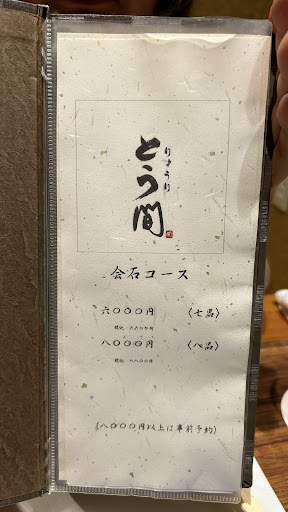 りょうり
とう間
会石コース
六〇〇〇円 〈七品〉
税込 六六〇〇円
八〇〇〇円 〈八品〉
税込 八八〇〇円
(八〇〇〇円以上は事前予約)